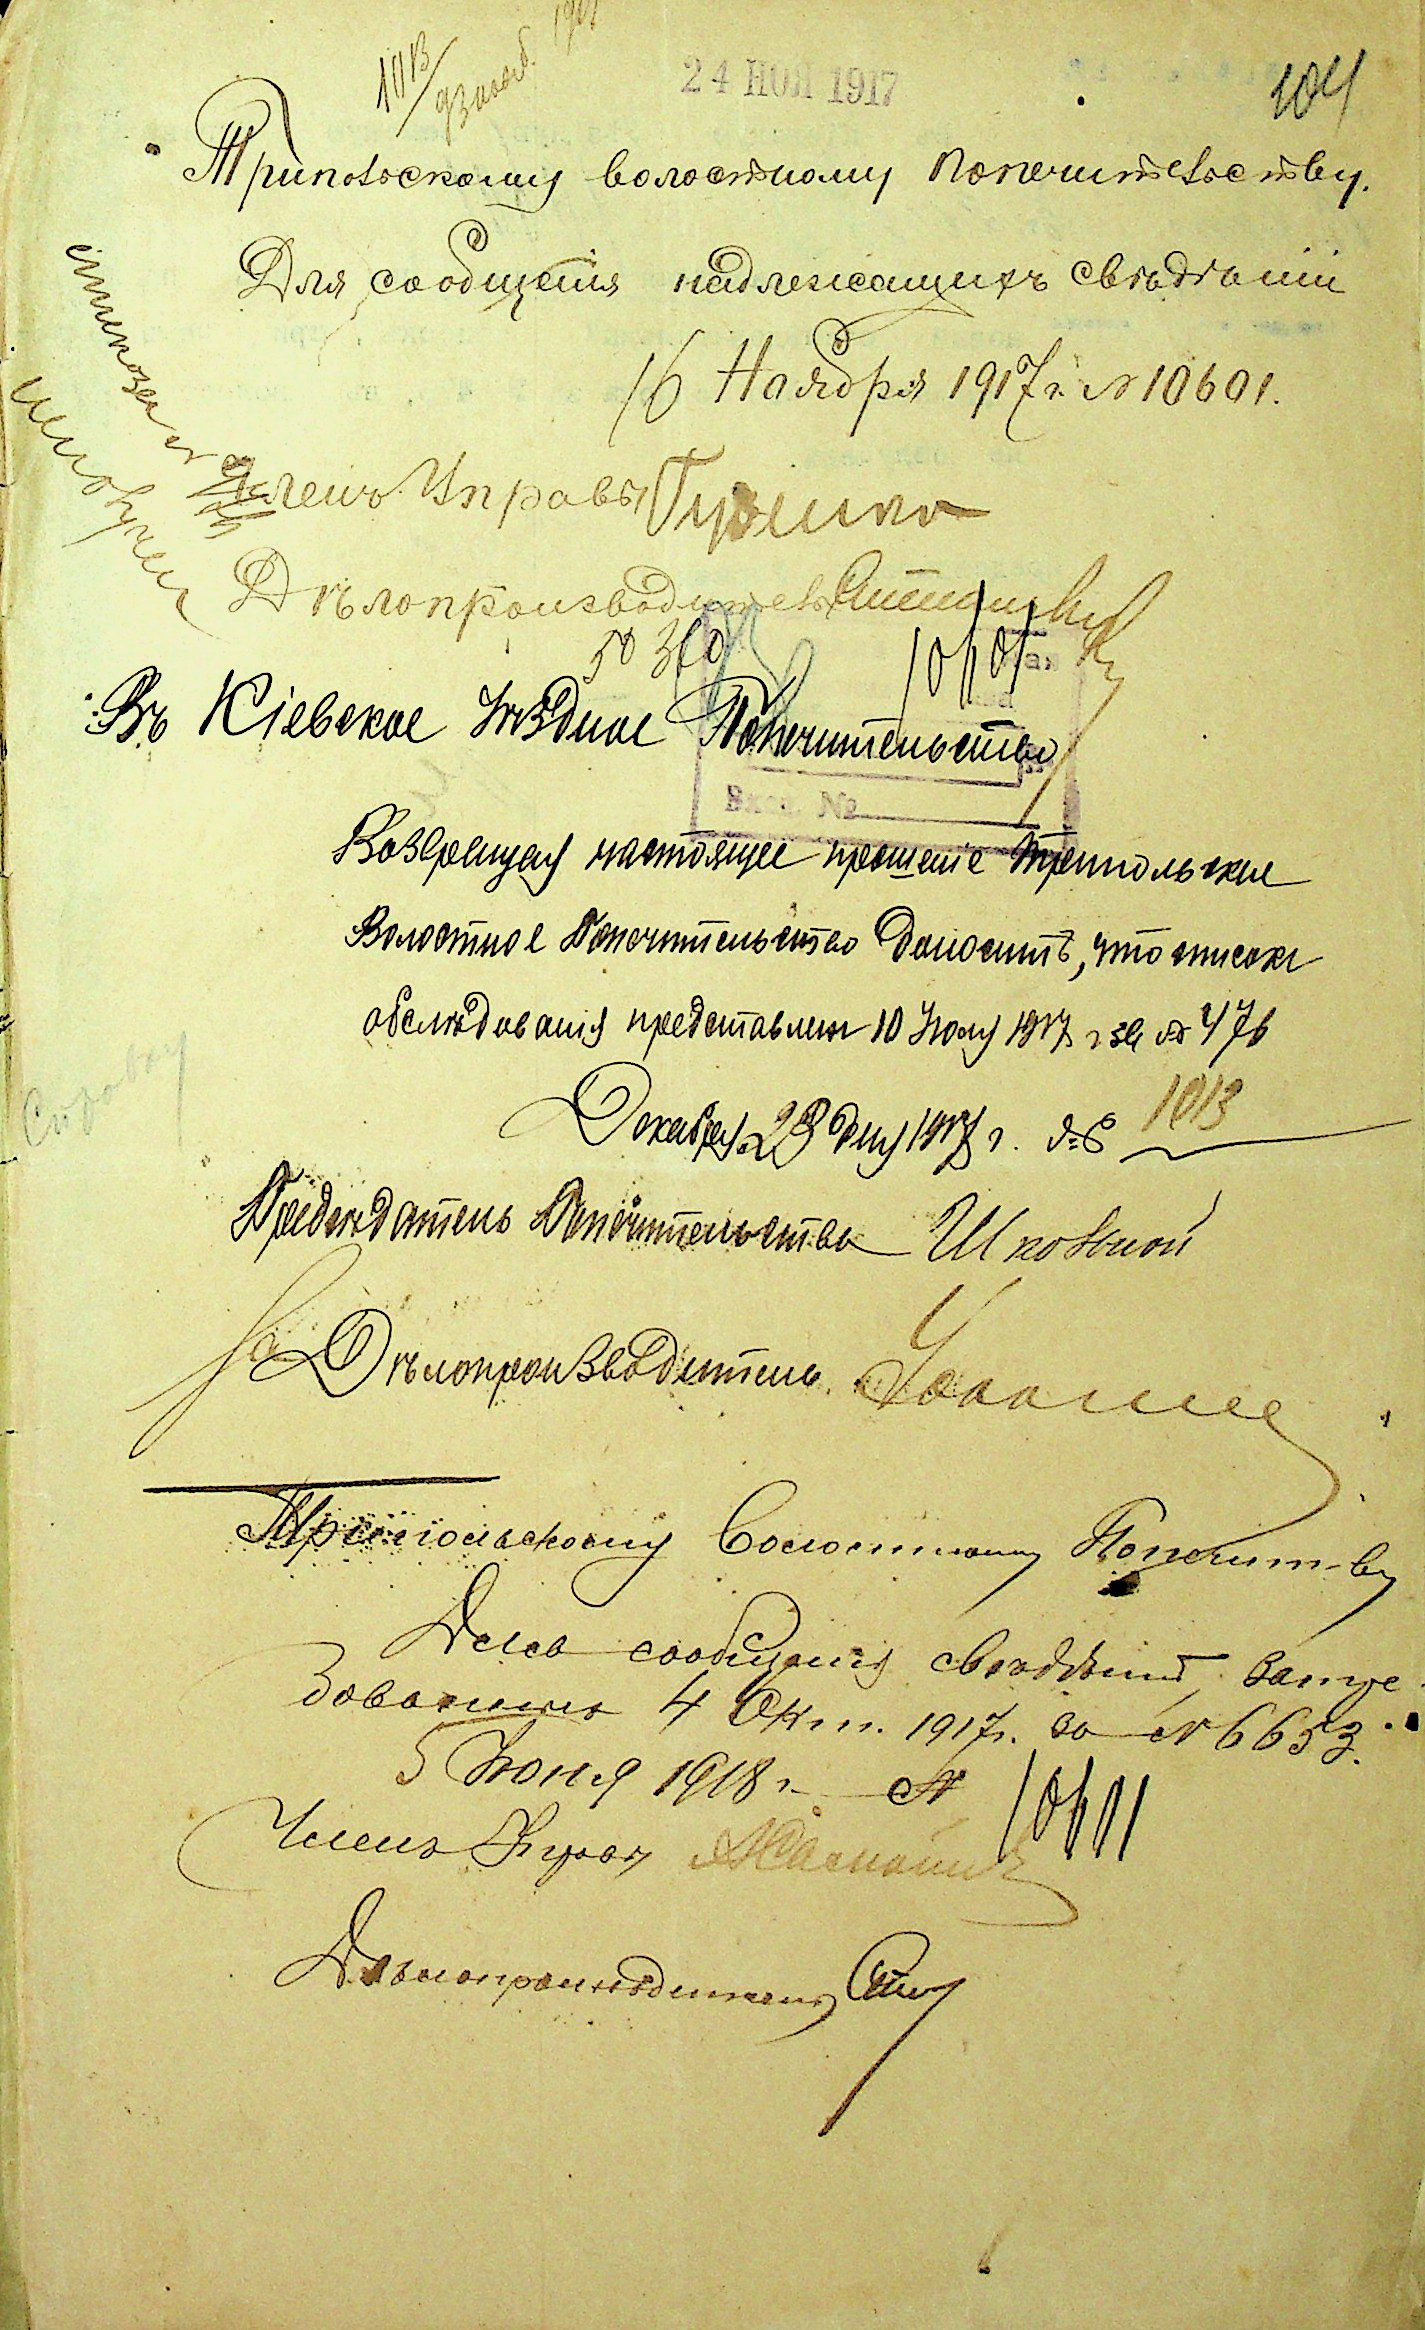 24 НОЯ 1917
104
Трипольскому волостному попечительству.
Для сообщенія надлежащихъ свѣдѣній
16 Ноября 1917 г. № 10601.
Членъ Управы
Дѣлопроизводитель
50 360
10601
Въ Кіевское Уѣздное Попечительство
Вход. №
Возвращая настоящее прошеніе Трипольское
Волостное Попечительство доноситъ, что списокъ
обслѣдованія представленъ 10 Іюля 1917 г за № 476
Декабря 23 дня 1917 г. № 1013
Предсѣдатель Попечительства Школьной
За Дѣлопроизводитель
Трипольскому Волостному Попечит-ву
Для сообщенія свѣдѣній, затре-
бованныхъ 4 Окт. 1917 г. за № 6653.
5 Іюня 1918 г. № 10601
Членъ Управы
Дѣлопроизводитель